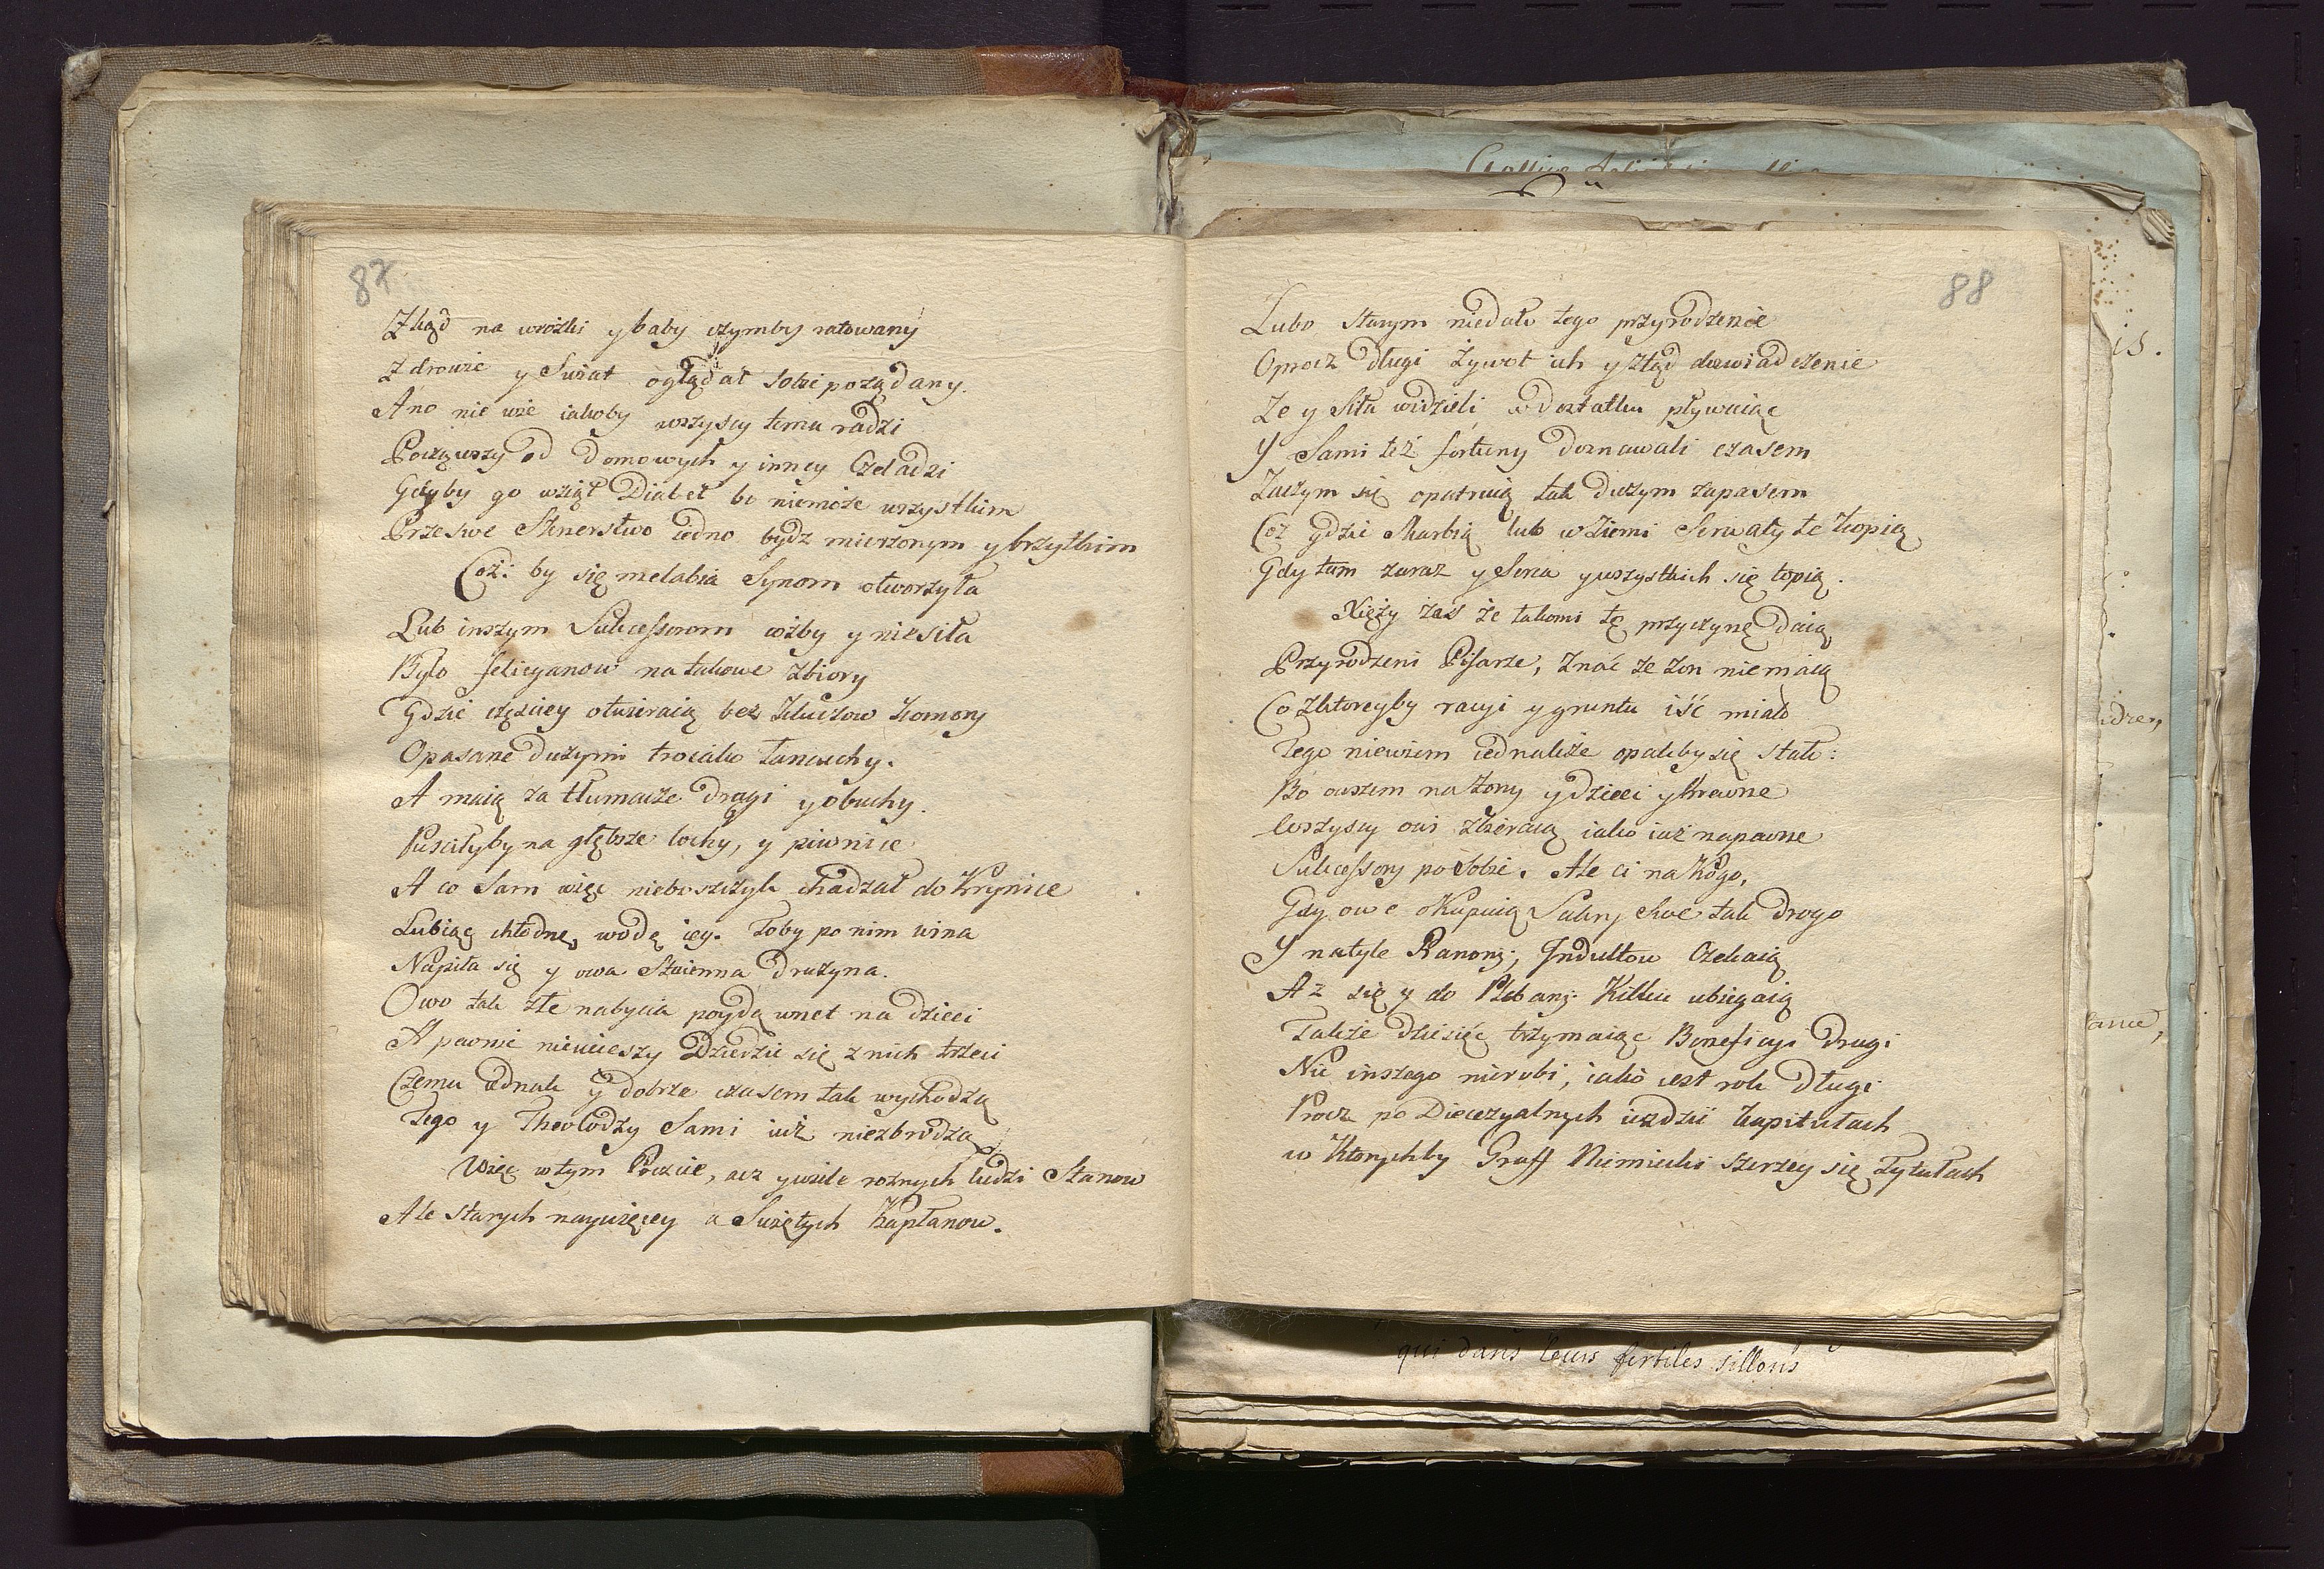 87
Zkąd na wrożki y baby czymby ratowany
Zdrowie y Swiat oglądał sobie poządany.
Ano nie wie iakoby wszyscy temu radzi
Począwszy od domowych y inney Czeladzi
Gdyby go wziął Diabeł bo niemoże wszystkim
Przeswe Sknerstwo iedno bydz mierzonym y brzytkim
Coż: by się Synom otworzyła
Lub inszym Sukcessorom wżby y niesiła
Było felicyanow na takowe zbiory
Gdzie częsciey otwieraią bez kluczow komory
Opasane dużymi troiako łancuchy.
A maią za tłumacze drągi y obuchy.
Pusciłyby na głębsze lochy, y piwnice
A co Sam więc nieboszczyk chadzał do Krynice
Lubiąc chłodne, wodę iey. Toby po nim wina
Napiła się y owa Staienna drużyna.
Owo tak złe nabycia poydą wnet na dzieci
A pewnie nieucieszy Dziedzic się z nich trzeci
Czemu iednak y dobrze czasem tak wychodzą
Tego y Theolodzy Sami iuż niezbrodzą
Więc w tym Poczcie, acz y wiele rożnych ludzi Stanow
Ale starych naywięcey a Swiętych Kapłanow.
88
Lubo starym niedało tego przyrodzenie
Oprocz długi żywot ich y ztąd doswiadczenie
Ze y siła widzieli, w dostatku pływaiąc
Y Sami też fortuny doznawali czasem
Zaczym się opatruią tak dużym zapasem
Coż gdzie Marbią lub w Ziemi Serwaty te kopią
Gdy tam zaraz y Serca y wszystkich się topią.
Xięży zaś że łakomi tę przyczynę daią
Przyrodzeni Pisarze, znać ze żon niemaią
Co zktoreyby racyi y gruntu iść miało
Tego niewiem iednakże opakby się stało:
Bo owszem na żony y dzieci y krewne
Wszyscy owi zbieraią iako iuż napewne
Sukcessory po sobie. Ale ci na kogo,
Gdy owe okupuią Sakry swe tak drogo
Y natyle Kanonj, Indultow Czekaią
Az się y do Plebanj Kilku ubiegaią
Także dziesięc trzymaiąc Beneficyi drugi
Nic inszego nierobi, iako iest rok długi
Procz po Diecezyalnych iezdzi kapitułach
w Ktorychby Graff Niemiecki szerzey się Tytułach
qui dans leurs fertiles sillons